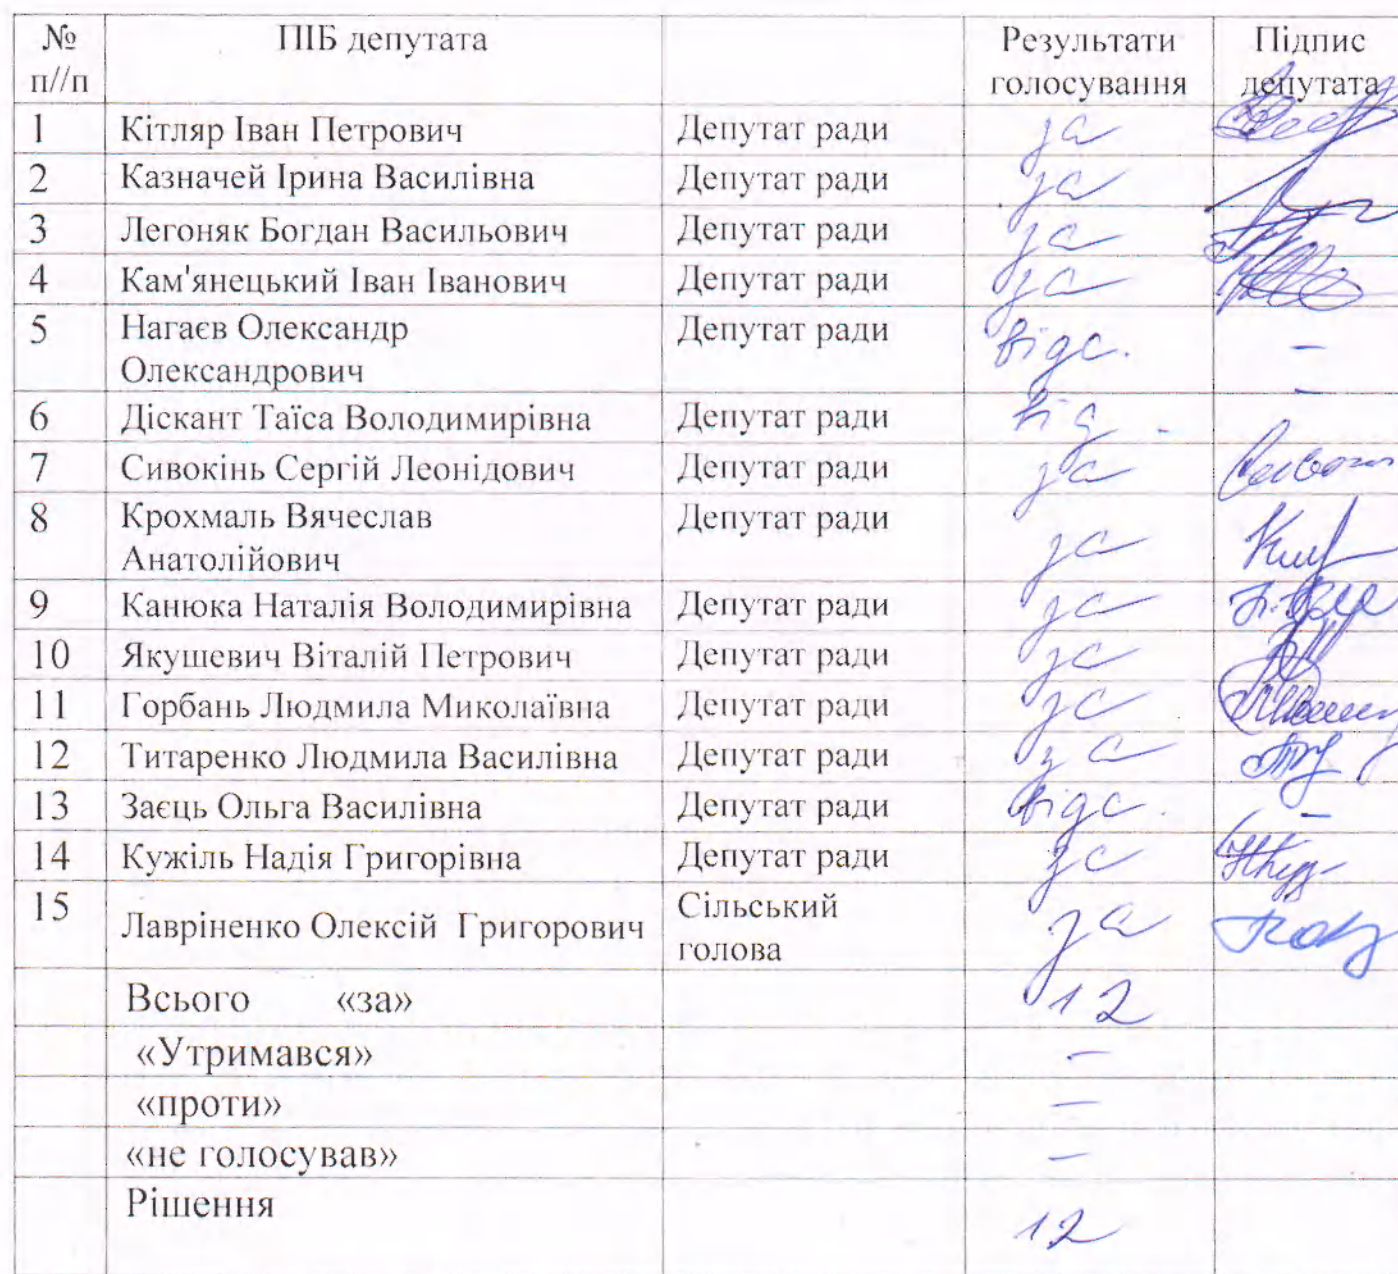 № ПІБ депутата Результати Підпис
п//п голосування депутата
1 Кітляр Іван Петрович Депутат ради за
2 Казначей Ірина Василівна Депутат ради за
3 Легоняк Богдан Васильович Депутат ради за
4 Кам'янецький Іван Іванович Депутат ради за
5 Нагаєв Олександр Депутат ради відс. –
Олександрович
6 Діскант Таїса Володимирівна Депутат ради від. –
7 Сивокінь Сергій Леонідович Депутат ради за
8 Крохмаль Вячеслав Депутат ради за
Анатолійович
9 Канюка Наталія Володимирівна Депутат ради за
10 Якушевич Віталій Петрович Депутат ради за
11 Горбань Людмила Миколаївна Депутат ради за
12 Титаренко Людмила Василівна Депутат ради за
13 Заєць Ольга Василівна Депутат ради відс. –
14 Кужіль Надія Григорівна Депутат ради за
15 Лавріненко Олексій Григорович Сільський за
голова
Всього «за» 12
«Утримався» –
«проти» –
«не голосував» –
Рішення 12